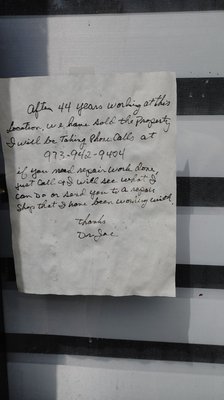 After 44 years working at this
location, we have sold the Property
I will be Taking Phone Calls at
973-942-9404
if you need repair work done,
just call & I will see what I
can Do or send you to a repair
shop that I have been working with.
thanks